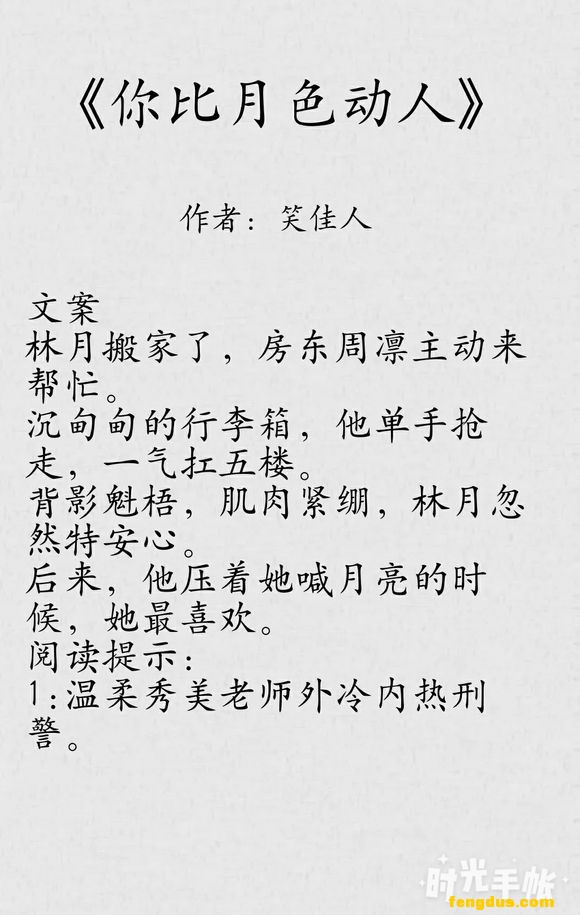 《你比月色动人》
作者：笑佳人
文案
林月搬家了，房东周凛主动来
帮忙。
沉甸甸的行李箱，他单手抢
走，一气扛五楼。
背影魁梧，肌肉紧绷，林月忽
然特安心。
后来，他压着她喊月亮的时
候，她最喜欢。
阅读提示：
1:温柔秀美老师外冷内热刑
警。
时光手帐
fengdus.com